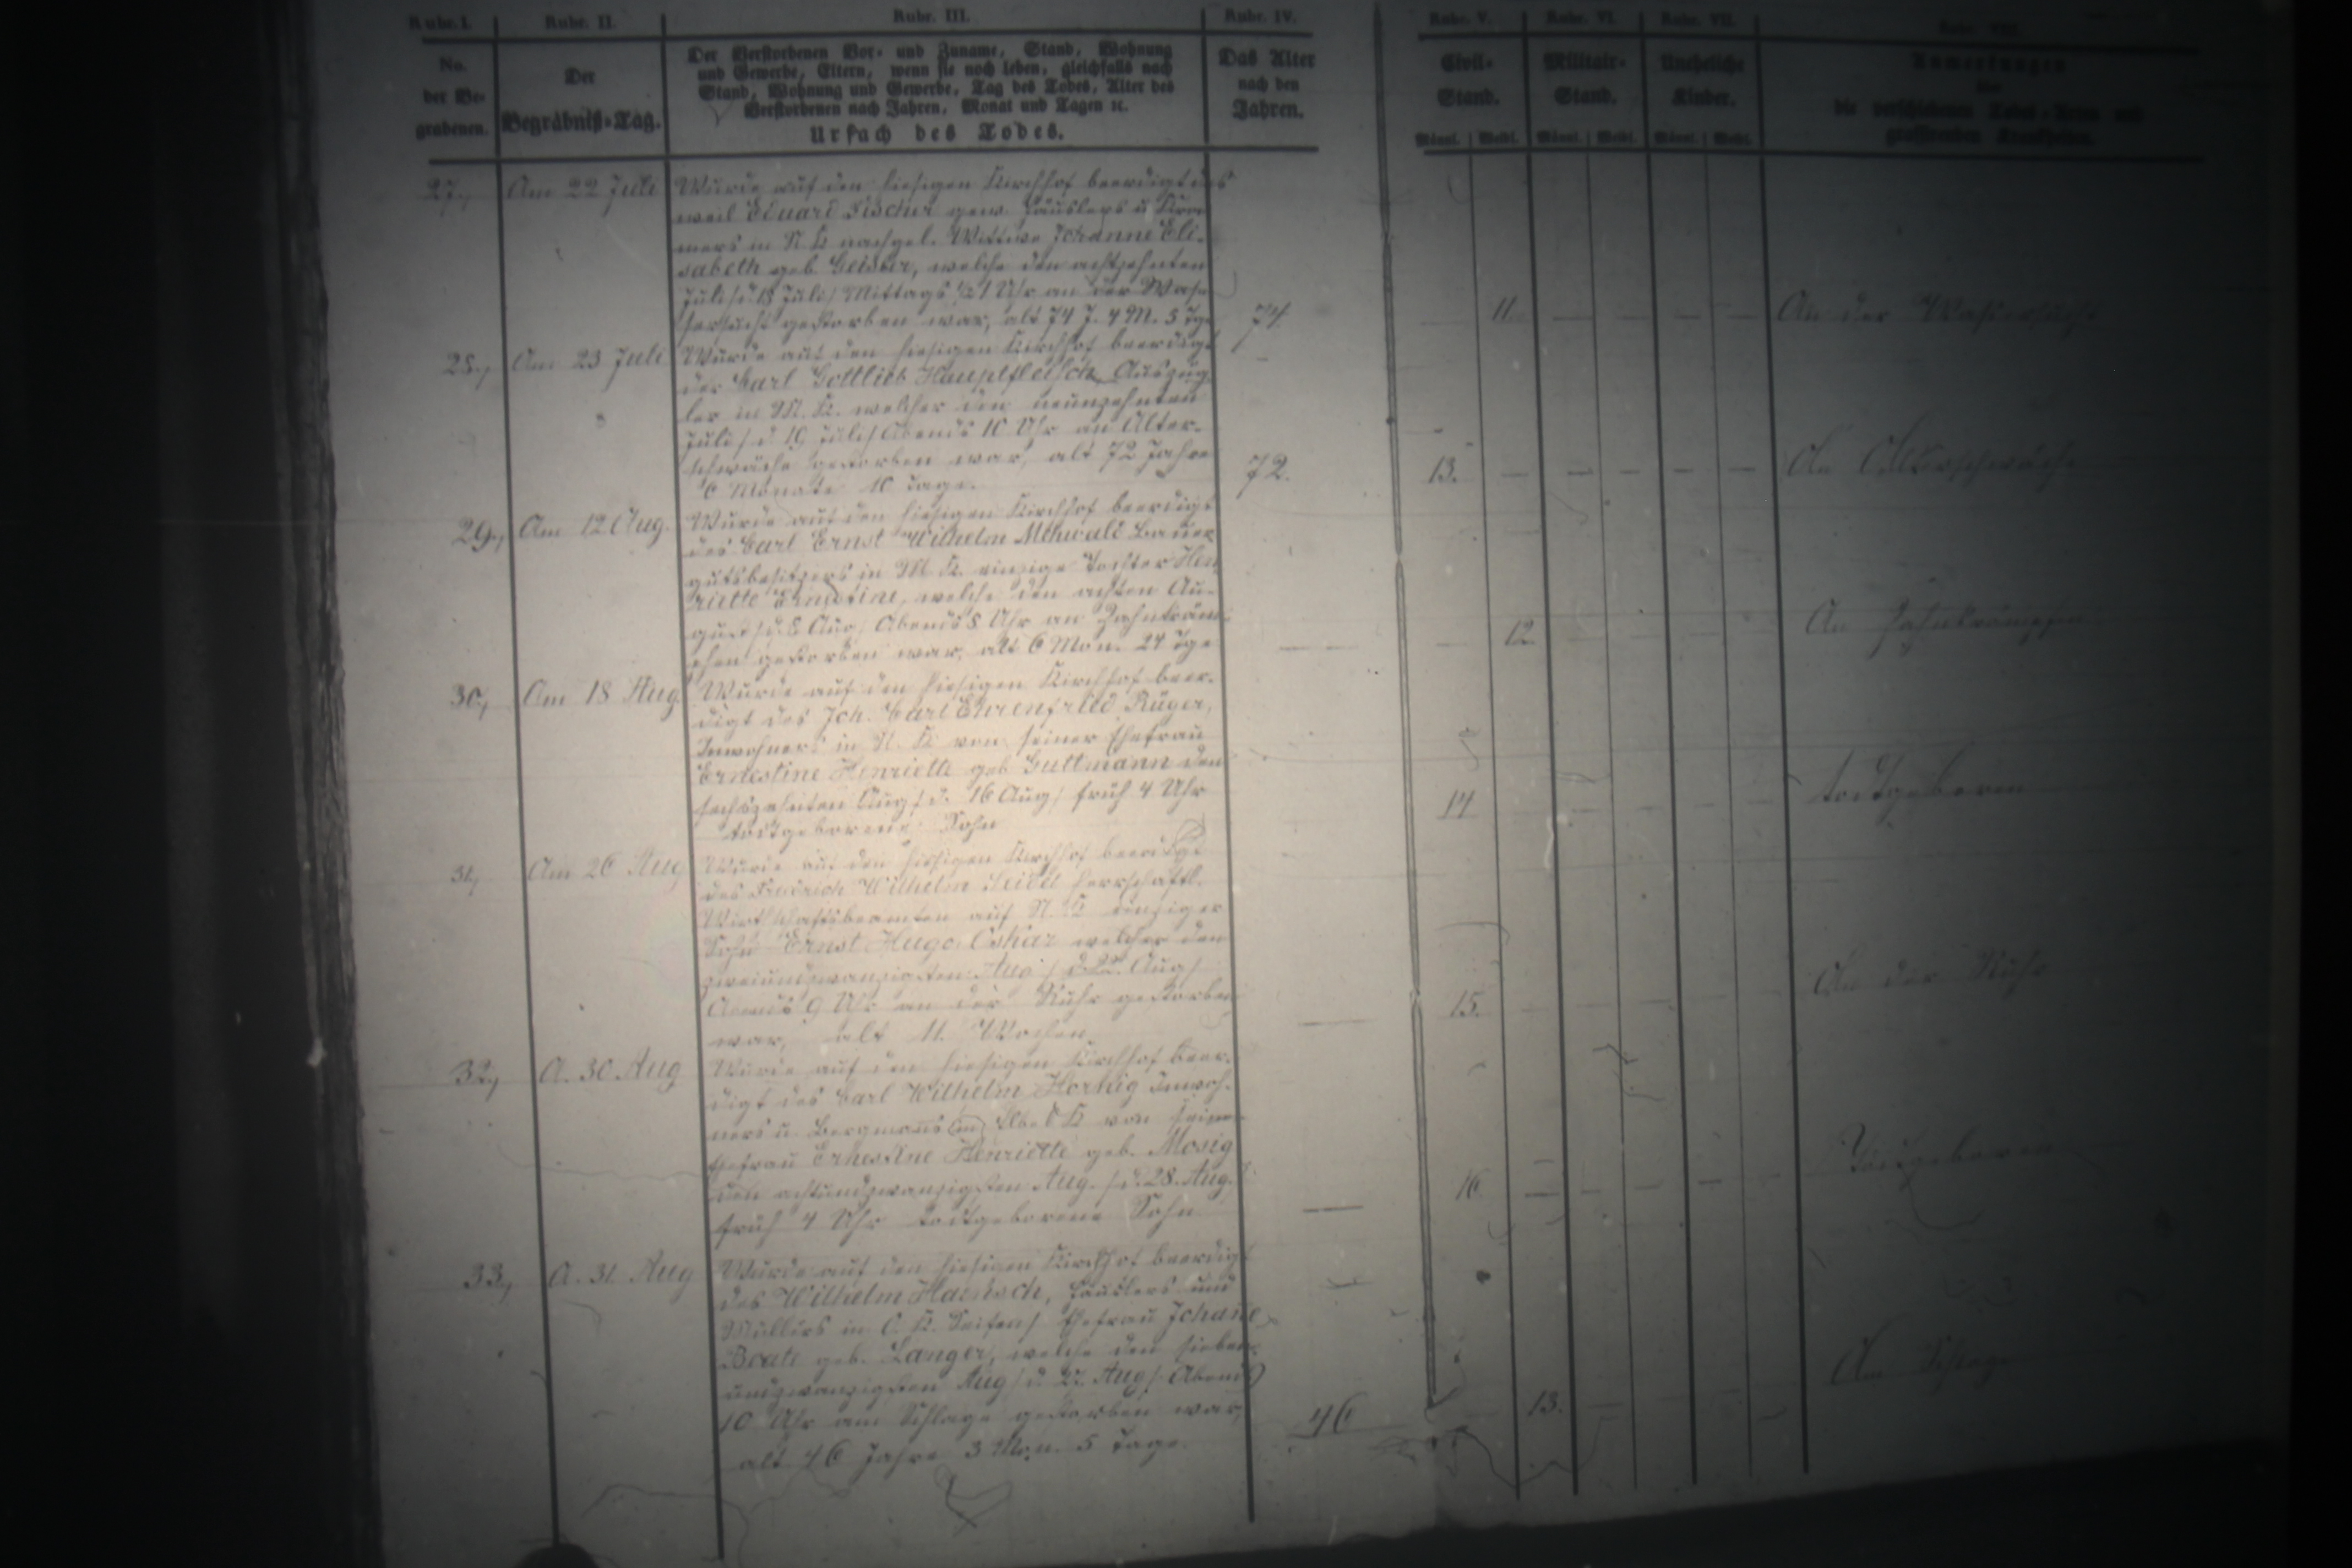 Rubr. I. Rubr. II. Rubr. III. Rubr. IV. Rubr. V. Rubr. VI. Rubr. VII.
No. der Be- grabenen.
Der Begräbniß-Tag.
Der Verstorbenen Vor- und Zuname, Stand, Wohnung
und Gewerbe, Eltern, wenn sie noch leben, gleichfalls nach
Stand, Wohnung und Gewerbe, Tag des Todes, Alter des
Verstorbenen nach Jahren, Monat und Tagen ꝛc.
Ursach des Todes.
Das Alter nach den Jahren.
Civil- Stand.
Militair- Stand.
Uneheliche Kinder.
Anmerkungen
Männl. Weibl. Männl. Weibl. Männl. Weibl.
27., Am 22 Juli
Wurde auf den hiesigen Kirchhof beerdigt des
weil Eduard Fischer gew. Häuslers u
mers in N. K nachgel. Wittwe Johanne Eli-
sabeth geb Geisler, welche den achtzehnten
Juli /d. 18 Juli/ Mittags ½1 Uhr an der Was-
sersucht gestorben war, alt 74 J. 4 M. 3 Tge
74. 11. An der Wassersucht
28., Am 23 Juli
Wurde auf den hiesigen Kirchhof beerdigt
der Carl Gottlieb Hauptfleisch, Auszüg-
ler in M. K. welcher den neunzehnten
Juli /d. 19 Juli/ Abends 10 Uhr an Alter-
schwäche gestorben war, alt 72 Jahre
6 Monate 10 Tage.
72. 13. An Alterschwäche
29., Am 12 Aug.
Wurde auf den hiesigen Kirchhof beerdigt
des Carl Ernst Wilhelm Bauer
gutsbesitzers in M K. einzige Tochter Hen
riette Ernestine, welche den achten Au-
gust /d. 8 Aug/ Abends 8 Uhr an Zahnkräm-
pfen gestorben war, alt 6 Mon. 24 Tge
12 An Zahnkrämpfen
30., Am 18 Aug
Wurde auf den hiesigen Kirchhof beer-
digt des Joh. Carl Ehrenfried Rüger,
Inwohners in N. K von seiner Ehefrau
Ernestine Henriette geb Guttmann den
sechszehnten Aug /d. 16 Aug/ früh 4 Uhr
todtgeborene Sohn
14 todtgeboren
31., Am 26 Aug
Wurde auf den hiesigen Kirchhof beerdigt
des Friedrich Wilhelm Seidel herrschaftl.
Wirthschaftsbeamten auf N. K einziger
Sohn Ernst Hugo Oskar welcher den
zweiundzwanzigsten Aug / d. 22. Aug/
Abends 9 Uhr an der Ruhr gestorben
war, alt 11. Wochen.
15. An der Ruhr
32., A. 30. Aug
Wurde auf den hiesigen Kirchhof beer-
digt des Carl Wilhelm Inwoh-
ners u. Bergmanns in K von seiner
Ehefrau Ernestine Henriette geb. Mosig
den achtundzwanzigsten Aug. /d. 28. Aug.
früh 4 Uhr todtgeborene Sohn
16 Todtgeboren
33., A. 31 Aug
Wurde auf den hiesigen Kirchhof beerdigt
des Wilhelm Häuslers und
Müllers in O. K. Seifen/ Ehefrau Johane
Beate geb. Langer, welche den sieben-
undzwanzigsten Aug /d. 27. Aug/ Abends
10 Uhr am Schlage gestorben war,
alt 46 Jahre 3 Mon. 5 Tage.
46 13. Am Schlage